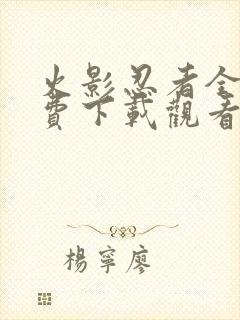 火影忍者全
費下載觀看
楊寧廖